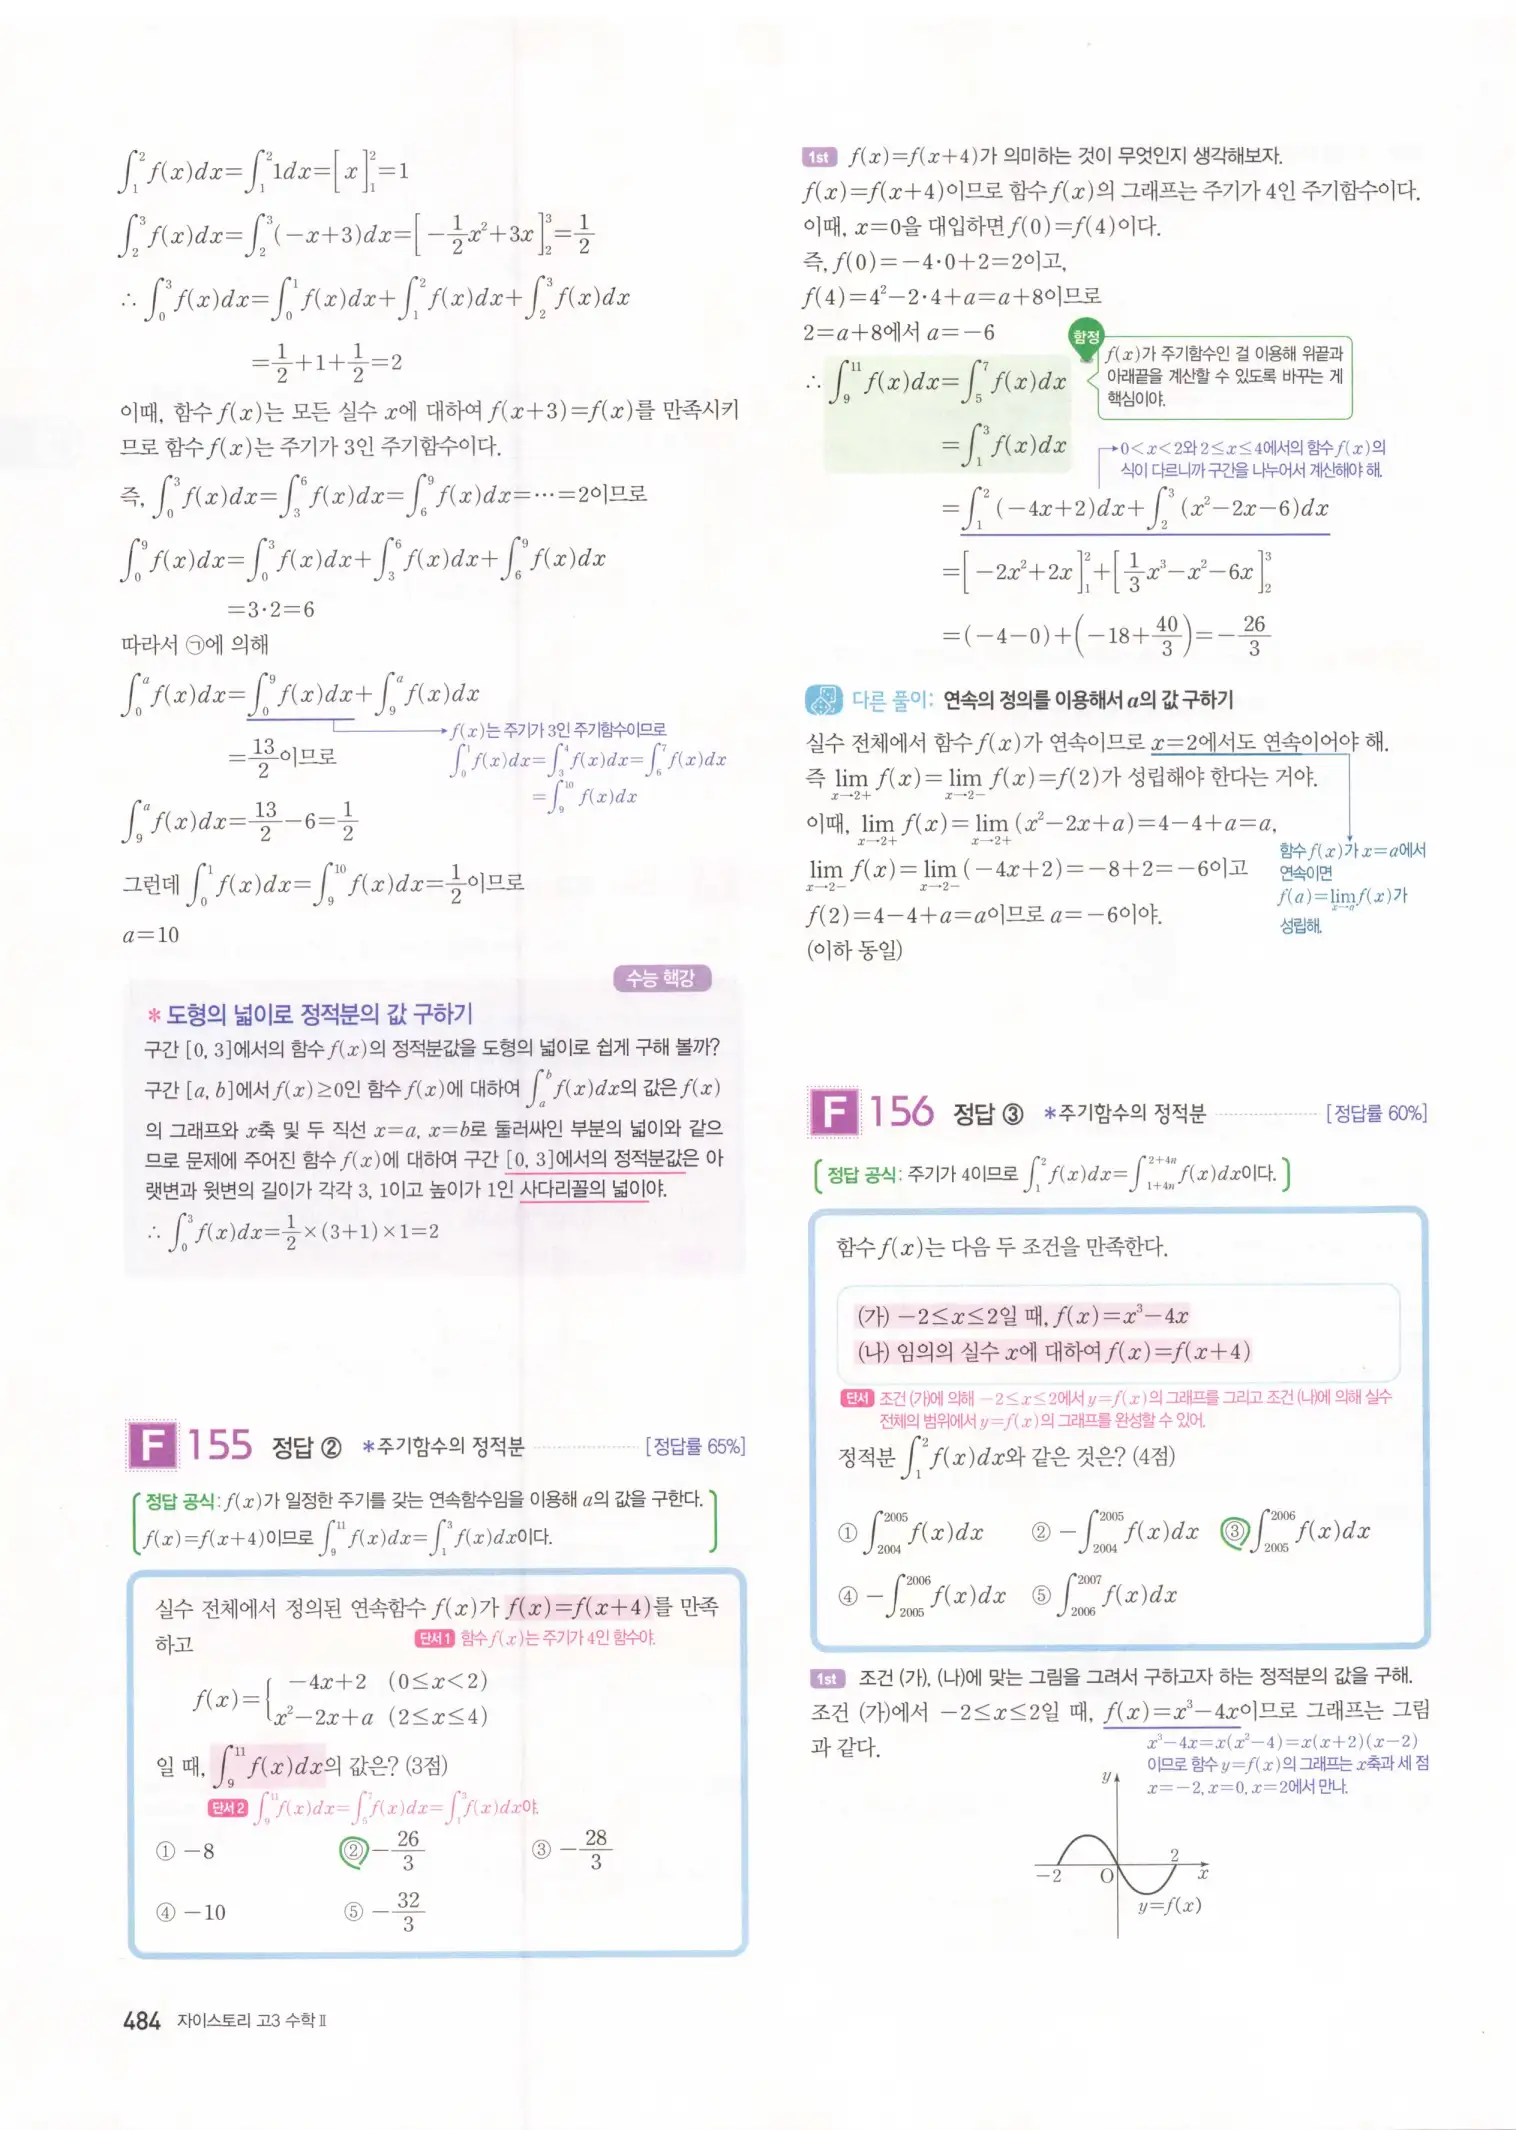 ∫₁² f(x)dx=∫₁² 1dx=[x]₁²=1
∫₂³ f(x)dx=∫₂³ (−x+3)dx=[−1/2 x²+3x]₂³=1/2
∴ ∫₀³ f(x)dx=∫₀¹ f(x)dx+∫₁² f(x)dx+∫₂³ f(x)dx
=1/2+1+1/2=2
이때, 함수 f(x)는 모든 실수 x에 대하여 f(x+3)=f(x)를 만족시키
므로 함수 f(x)는 주기가 3인 주기함수이다.
즉, ∫₀³ f(x)dx=∫₃⁶ f(x)dx=∫₆⁹ f(x)dx=⋯=2이므로
∫₀⁹ f(x)dx=∫₀³ f(x)dx+∫₃⁶ f(x)dx+∫₆⁹ f(x)dx
=3·2=6
따라서 ㉠에 의해
∫₀ᵃ f(x)dx=∫₀⁹ f(x)dx+∫₉ᵃ f(x)dx
f(x)는 주기가 3인 주기함수이므로
∫₀¹ f(x)dx=∫₃⁴ f(x)dx=∫₆⁷ f(x)dx
=∫₉¹⁰ f(x)dx
=13/2이므로
∫₉ᵃ f(x)dx=13/2−6=1/2
그런데 ∫₀¹ f(x)dx=∫₉¹⁰ f(x)dx=1/2이므로
a=10
수능 핵강
* 도형의 넓이로 정적분의 값 구하기
구간 [0, 3]에서의 함수 f(x)의 정적분값을 도형의 넓이로 쉽게 구해 볼까?
구간 [a, b]에서 f(x)≥0인 함수 f(x)에 대하여 ∫ₐᵇ f(x)dx의 값은 f(x)
의 그래프와 x축 및 두 직선 x=a, x=b로 둘러싸인 부분의 넓이와 같으
므로 문제에 주어진 함수 f(x)에 대하여 구간 [0, 3]에서의 정적분값은 아
랫변과 윗변의 길이가 각각 3, 1이고 높이가 1인 사다리꼴의 넓이야.
∴ ∫₀³ f(x)dx=1/2×(3+1)×1=2
F 155 정답 ② *주기함수의 정적분 [정답률 65%]
정답 공식: f(x)가 일정한 주기를 갖는 연속함수임을 이용해 a의 값을 구한다.
f(x)=f(x+4)이므로 ∫₉¹¹ f(x)dx=∫₁³ f(x)dx이다.
실수 전체에서 정의된 연속함수 f(x)가 f(x)=f(x+4)를 만족
하고
단서1 함수 f(x)는 주기가 4인 함수야.
f(x)={ −4x+2 (0≤x<2)
x²−2x+a (2≤x≤4)
일 때, ∫₉¹¹ f(x)dx의 값은? (3점)
단서2 ∫₉¹¹ f(x)dx=∫₅⁷ f(x)dx=∫₁³ f(x)dx야.
① −8 ② −26/3 ③ −28/3
④ −10 ⑤ −32/3
484 자이스토리 고3 수학Ⅱ
1st f(x)=f(x+4)가 의미하는 것이 무엇인지 생각해보자.
f(x)=f(x+4)이므로 함수 f(x)의 그래프는 주기가 4인 주기함수이다.
이때, x=0을 대입하면 f(0)=f(4)이다.
즉, f(0)=−4·0+2=2이고,
f(4)=4²−2·4+a=a+8이므로
2=a+8에서 a=−6
함정
f(x)가 주기함수인 걸 이용해 위끝과
아래끝을 계산할 수 있도록 바꾸는 게
핵심이야.
∴ ∫₉¹¹ f(x)dx=∫₅⁷ f(x)dx
=∫₁³ f(x)dx
0<x<2와 2≤x≤4에서의 함수 f(x)의
식이 다르니까 구간을 나누어서 계산해야 해.
=∫₁² (−4x+2)dx+∫₂³ (x²−2x−6)dx
=[−2x²+2x]₁²+[1/3 x³−x²−6x]₂³
=(−4−0)+(−18+40/3)=−26/3
다른 풀이: 연속의 정의를 이용해서 a의 값 구하기
실수 전체에서 함수 f(x)가 연속이므로 x=2에서도 연속이어야 해.
즉 lim_{x→2+} f(x)=lim_{x→2−} f(x)=f(2)가 성립해야 한다는 거야.
이때, lim_{x→2+} f(x)=lim_{x→2+} (x²−2x+a)=4−4+a=a,
lim_{x→2−} f(x)=lim_{x→2−} (−4x+2)=−8+2=−6이고
f(2)=4−4+a=a이므로 a=−6이야.
(이하 동일)
함수 f(x)가 x=a에서
연속이면
f(a)=lim_{x→a} f(x)가
성립해.
F 156 정답 ③ *주기함수의 정적분 [정답률 60%]
정답 공식: 주기가 4이므로 ∫₁² f(x)dx=∫₁₊₄ₙ²⁺⁴ⁿ f(x)dx이다.
함수 f(x)는 다음 두 조건을 만족한다.
(가) −2≤x≤2일 때, f(x)=x³−4x
(나) 임의의 실수 x에 대하여 f(x)=f(x+4)
단서 조건 (가)에 의해 −2≤x≤2에서 y=f(x)의 그래프를 그리고 조건 (나)에 의해 실수
전체의 범위에서 y=f(x)의 그래프를 완성할 수 있어.
정적분 ∫₁² f(x)dx와 같은 것은? (4점)
① ∫₂₀₀₄²⁰⁰⁵ f(x)dx ② −∫₂₀₀₄²⁰⁰⁵ f(x)dx ③ ∫₂₀₀₅²⁰⁰⁶ f(x)dx
④ −∫₂₀₀₅²⁰⁰⁶ f(x)dx ⑤ ∫₂₀₀₆²⁰⁰⁷ f(x)dx
1st 조건 (가), (나)에 맞는 그림을 그려서 구하고자 하는 정적분의 값을 구해.
조건 (가)에서 −2≤x≤2일 때, f(x)=x³−4x이므로 그래프는 그림
과 같다.
x³−4x=x(x²−4)=x(x+2)(x−2)
이므로 함수 y=f(x)의 그래프는 x축과 세 점
x=−2, x=0, x=2에서 만나.
y
−2 O 2 x
y=f(x)